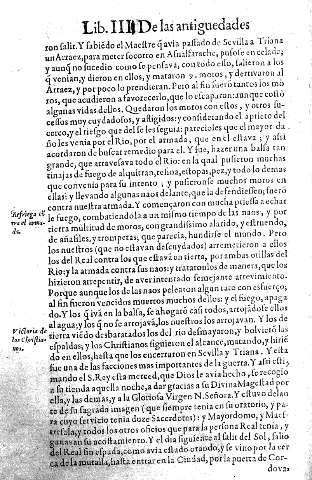 Lib. IIII De las antiguedades
ron salir. Y sabiẽdo el Maestre q̃ avia passado de Sevilla a Triana
un Arraez, para meter socorro en Asnalfarache, pusose en celada;
y aunq̃ no sucedio como se pensava, con todo esso, salieron a los
q̃ venian, y dieron en ellos, y mataron 9. moros, y derrivaron al
Arraez, y por poco lo prendieran. Pero al fin fuerõ tantos los mo
ros, que acudieron a favorecerlo, que lo escaparon: aunque costò
algunas vidas dellos. Quedaron los moros con estos, y otros su-
cessos muy cuydadosos, y afligidos: y considerando el aprieto del
cerco, y el riesgo que del se les seguia: pareciòles que el mayor da
ño les venia por el Rio, por el armada, que en el estava; y assi
acordaron de buscar remedio para el. Y fue, hazer una balsa tan
grande, que atravesava todo el Rio: en la qual pusieron muchas
tinajas de fuego de alquitran, resina, estopas, pez, y todo lo demas
que convenia para su intento, y pusieronse muchos moros en
ellas: y llevando algunas naos delante, que la defendiessen, fuerõ
contra nuestra armada. Y començaron con mucha priessa a echar
le fuego, combatiendola a un mismo tiempo de las naos, y por
tierra multitud de moros, con grandissimo alarido, y estruendo,
de añafiles, y trompetas, que parecia, hundirse el mundo. Pero
los nuestros (que no estavan descuydados) arremetieron a ellos
los del Real contra los que estavã en tierra, por ambas orillas del
Rio: y la armada contra sus naos: y trataronlos de manera, que los
hizieron arrepentir, de aver intentado semejante atrevimiento.
Porque aunque los de las naos pelearon algun rato con esfuerço;
al fin fueron vencidos muertos muchos dellos: y el fuego, apaga
do. Y los q̃ ivã en la balsa, se ahogarõ casi todos, arrojãdose ellos
al agua; y los q̃ no se arrojavã, los nuestros los arrojavan. Y los de
tierra viẽdo desbaratados los del rio desmayaron, y bolvierõ las
espaldas, y los Christianos siguieron el alcance, matando, y hiriẽ
do en ellos, hasta que los encerraron en Sevilla y Triana. Y esta
fue una de las facciones mas importantes de la guerra. Y assi esti-
mando el S. Rey esta merced, que Dios le avia hecho, se recogio
a su tienda aquella noche, a dar gracias a su Divina Magestad por
ella, y las demas, y a la Gloriosa Virgen N. Señora. Y estuvo delan
te de su sagrada imagen (que siempre tenia en su oratorio, y pa-
ra cuyo servicio tenia doze Sacerdotes): y Mayordomo, y Maes-
tresala, y todos los otros oficios que para la persona Real tenia, y
ganavan su acostamiento. Y el dia siguiente al salir del Sol, salio
del Real sin espada, como avia estado orando, y se vino por la ver
ca de la muralla, hasta entrar en la Ciudad, por la puerta de Cor-
dova:
Refriega cõ
tra el arma
da.
Victoria de
los Christia-
nos.